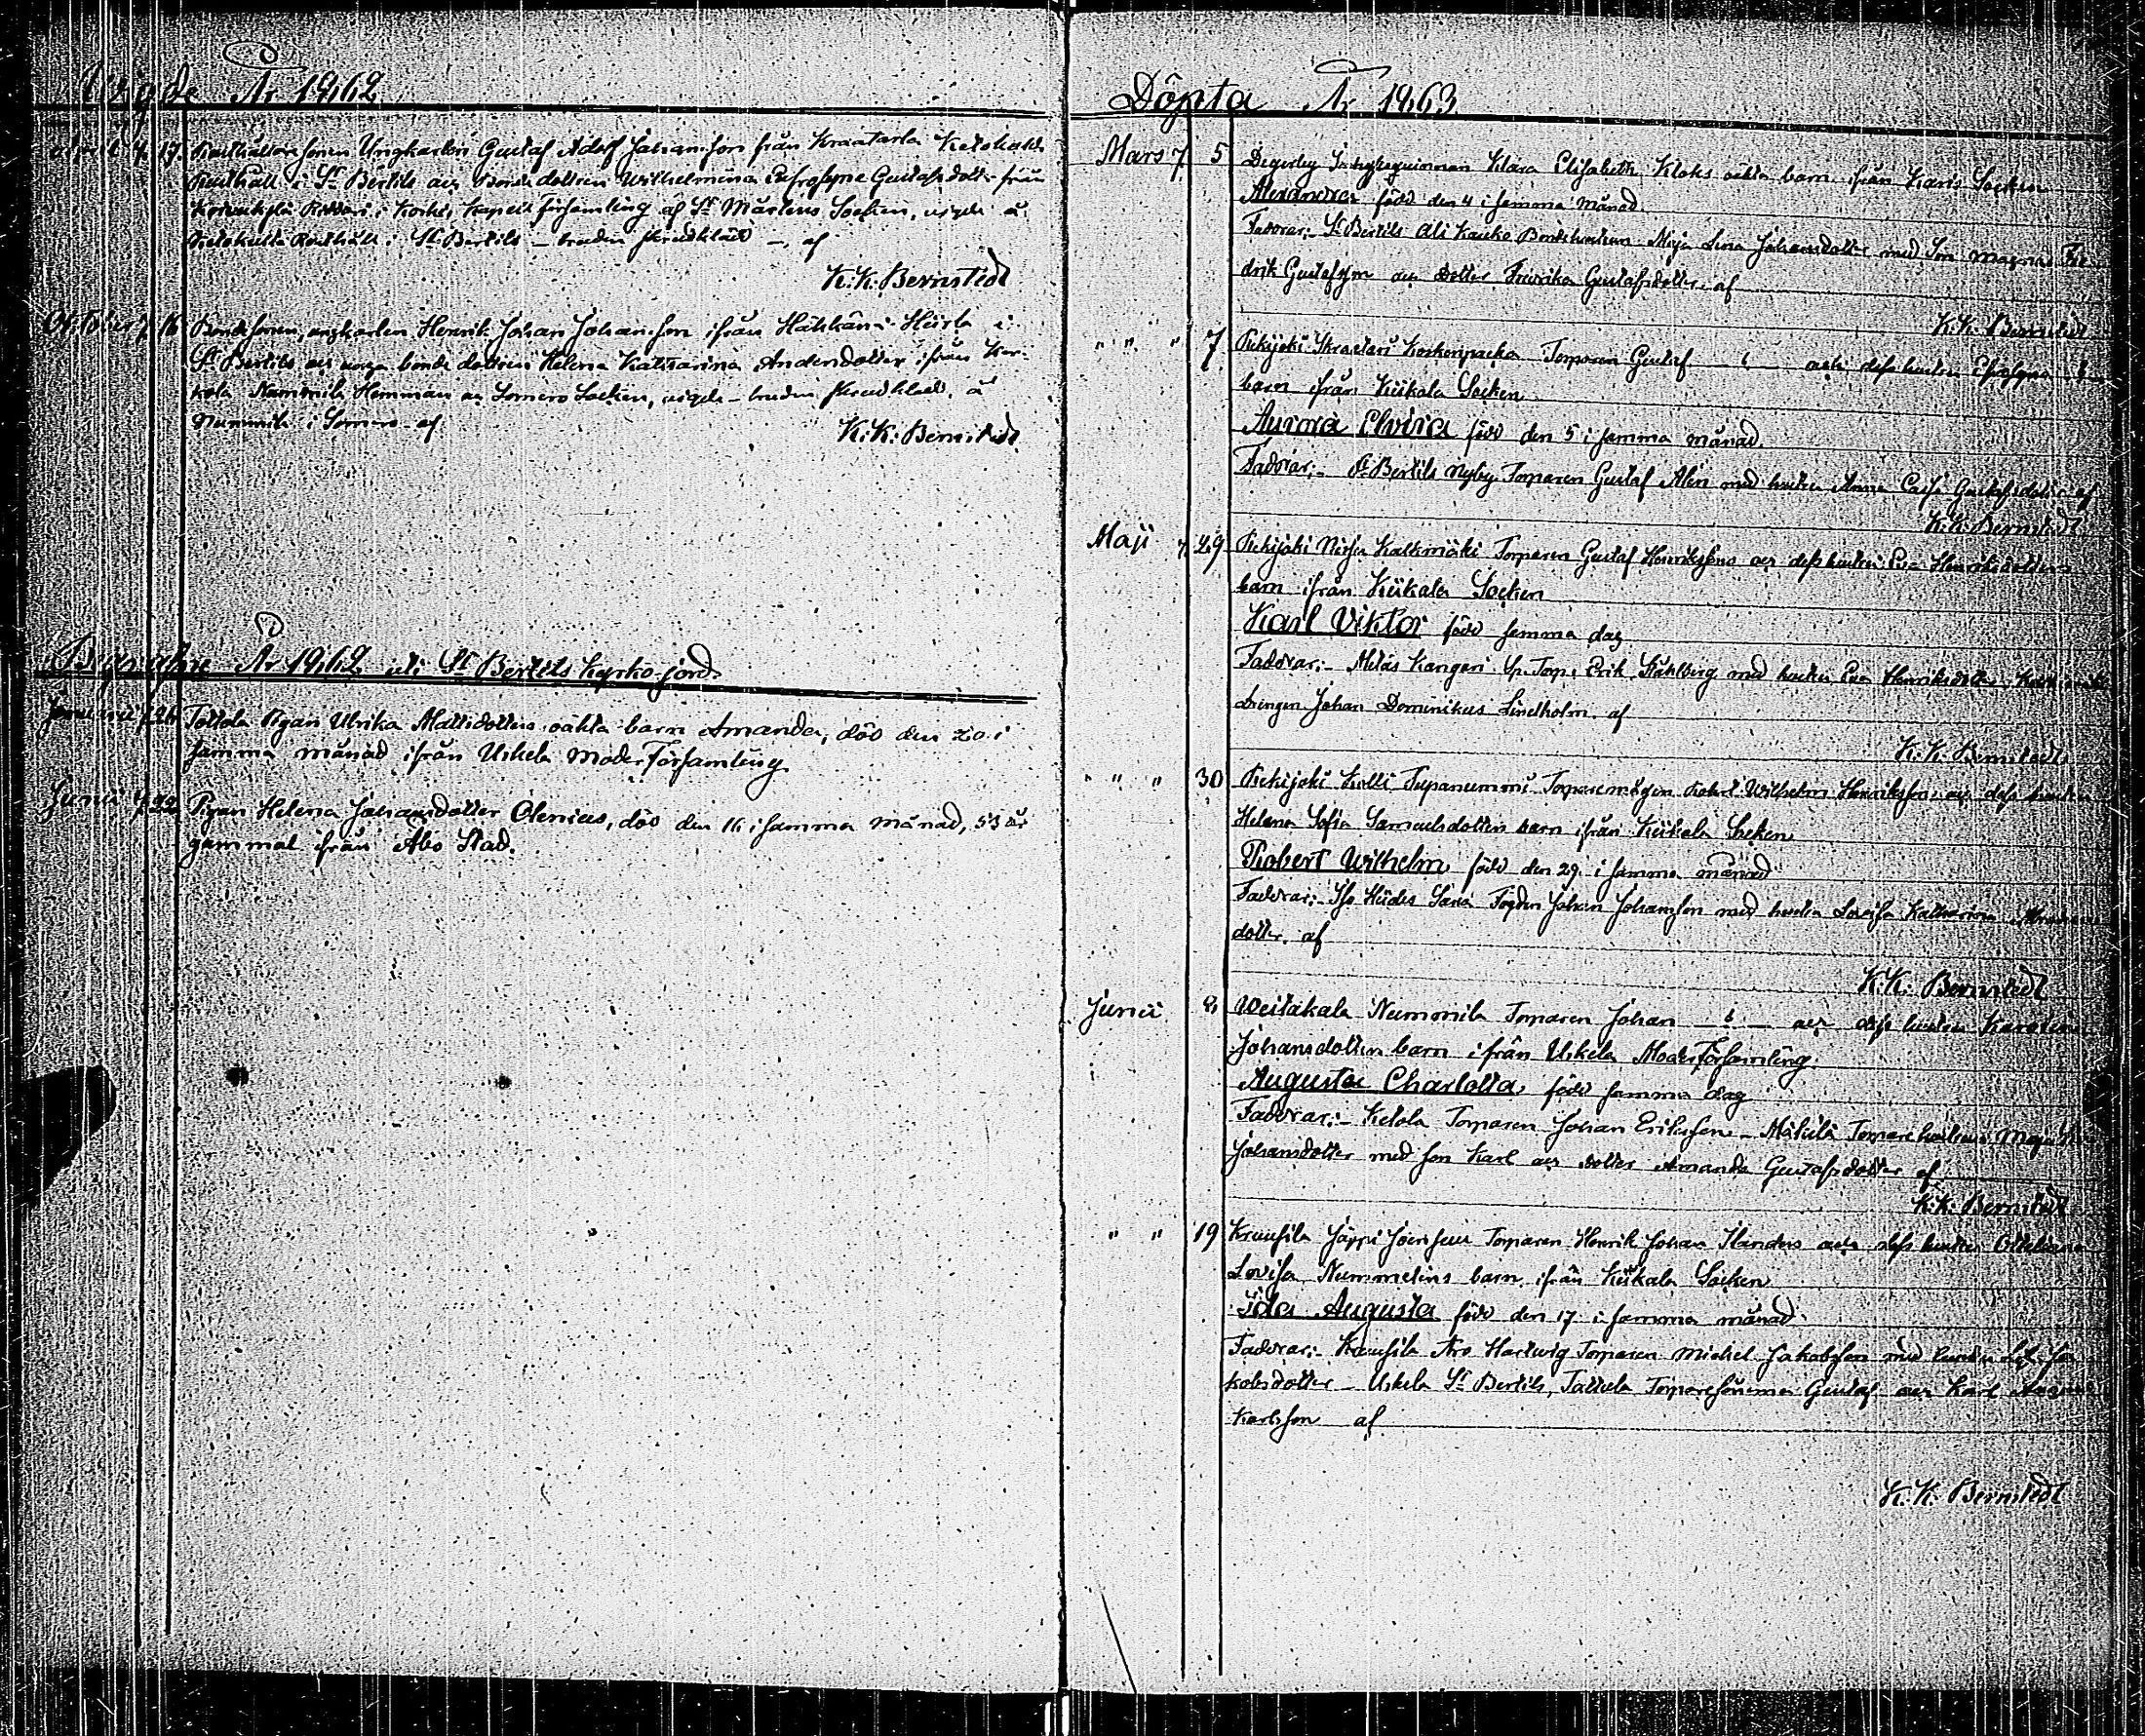 Wigde År 1862
april d. 17. Rusthållare sonen Ungkarlen Gustaf Adolf Johansson från Kraatarla Ketohaka
Rusthåll i St Bertils och Bonde dottren Wilhelmina Eufrosyne Gustafsdotter från
i Koskis Kapell församling af St Mårtens Socken, vigde å
Rusthåll i St Bertils – bruden skrudklädd –, af
K. K. Bernstedt
October d. 16 Bonde sonen, ungkarlen Henrik Johan Johansson ifrån Häntälä Heurla i
St Bertils och unga bonde dottren Helena Katharina Andersdotter ifrån
Nummila Hemman och Somero Socken, vigde – bruden skrudklädd, å
Nummila i Somero af
K. K. Bernstedt
Begrafne År 1862 uti St Bertils Kyrko-jord.
Januarii d. 26 Tottola Pigan Ulrika Mattsdotters oäkta barn Amanda, död den 20 i
samma månad ifrån Uskela Moder Församling
Junii d. 22 Pigan Helena Johansdotter Olenius, död den 16 i samma månad, 53 år
gammal ifrån Åbo Stad.
Döpta År 1863
Mars d. 5 Degerby Klara Elisabeth Kloks oäkta barn ifrån Karis Socken
Alexandra född den 4 i samma månad
Faddrar:- St Bertils Ali Kauko Bondehustrun Maja Lena Johansdotter med Son Magnus Fre-
drik Gustafsson och dotter Fredrika Gustafsdotter. af
K. K. Bernstedt
" " " 7 Rekijoki Skraatari Koskenpacka Torparen Gustaf och dess hustru Efrosyna
barn ifrån Kiikala Socken
Aurora Elvira född den 5 i samma månad.
Faddrar:- St Bertils Nyby Torparen Gustaf Alén med hustru Anna Caisa Gustafsdotter af
K. K. Bernstedt
Maji d. 29 Rekijoki Nirfu Kalkmäki Torparen Gustaf Henrikssons och dess hustru Eva Henriksdotters
barn ifrån Kiikala Socken
Karl Viktor född samma dag
Faddrar:- Metås Kangari Sp. Torp. Erik Ståhlberg med hustru Eva Henriksdotter
drängen Johan Dominikus Lindholm. af
K. K. Bernstedt
" " 30 Rekijoki Kolli Tupanummi Torpare mågen Robert Wilhelm Henriksson och dess hustru
Helena Sofia Samuelsdotters barn ifrån Kiikala Socken
Robert Wilhelm född den 29 i samma månad
Faddrar:- Iso Hiides Saxa Fogden Johan Johansson med hustru Lovisa Katharina
dotter. af
K. K. Bernstedt
Junii 8 Weitakala Nummila Torparen Johan och dess hustru
Johansdotters barn ifrån Uskela Moder Församling
Augusta Charlotta, född samma dag
Faddrar:- Ketola Torparen Johan Eriksson – Mäkilä Torpare hustrun Maja
Johansdotter med son Karl och dotter Amanda Gustafsdotter af
K. K. Bernstedt
" " 19 Kruusila Jäppi Torparen Henrik Johan Ilanders och dess hustru
Lovisa Nummelins barn ifrån Kiikala Socken
Ida Augusta född den 17 i samma månad
Faddrar:- Kruusila Aro Hartwig Torparen Michel Jakobsson med hustru Ja-
kobsdotter – Uskela St Bertils, Tattula Torparesönerna Gustaf och Karl
Karlsson af
K. K. Bernstedt